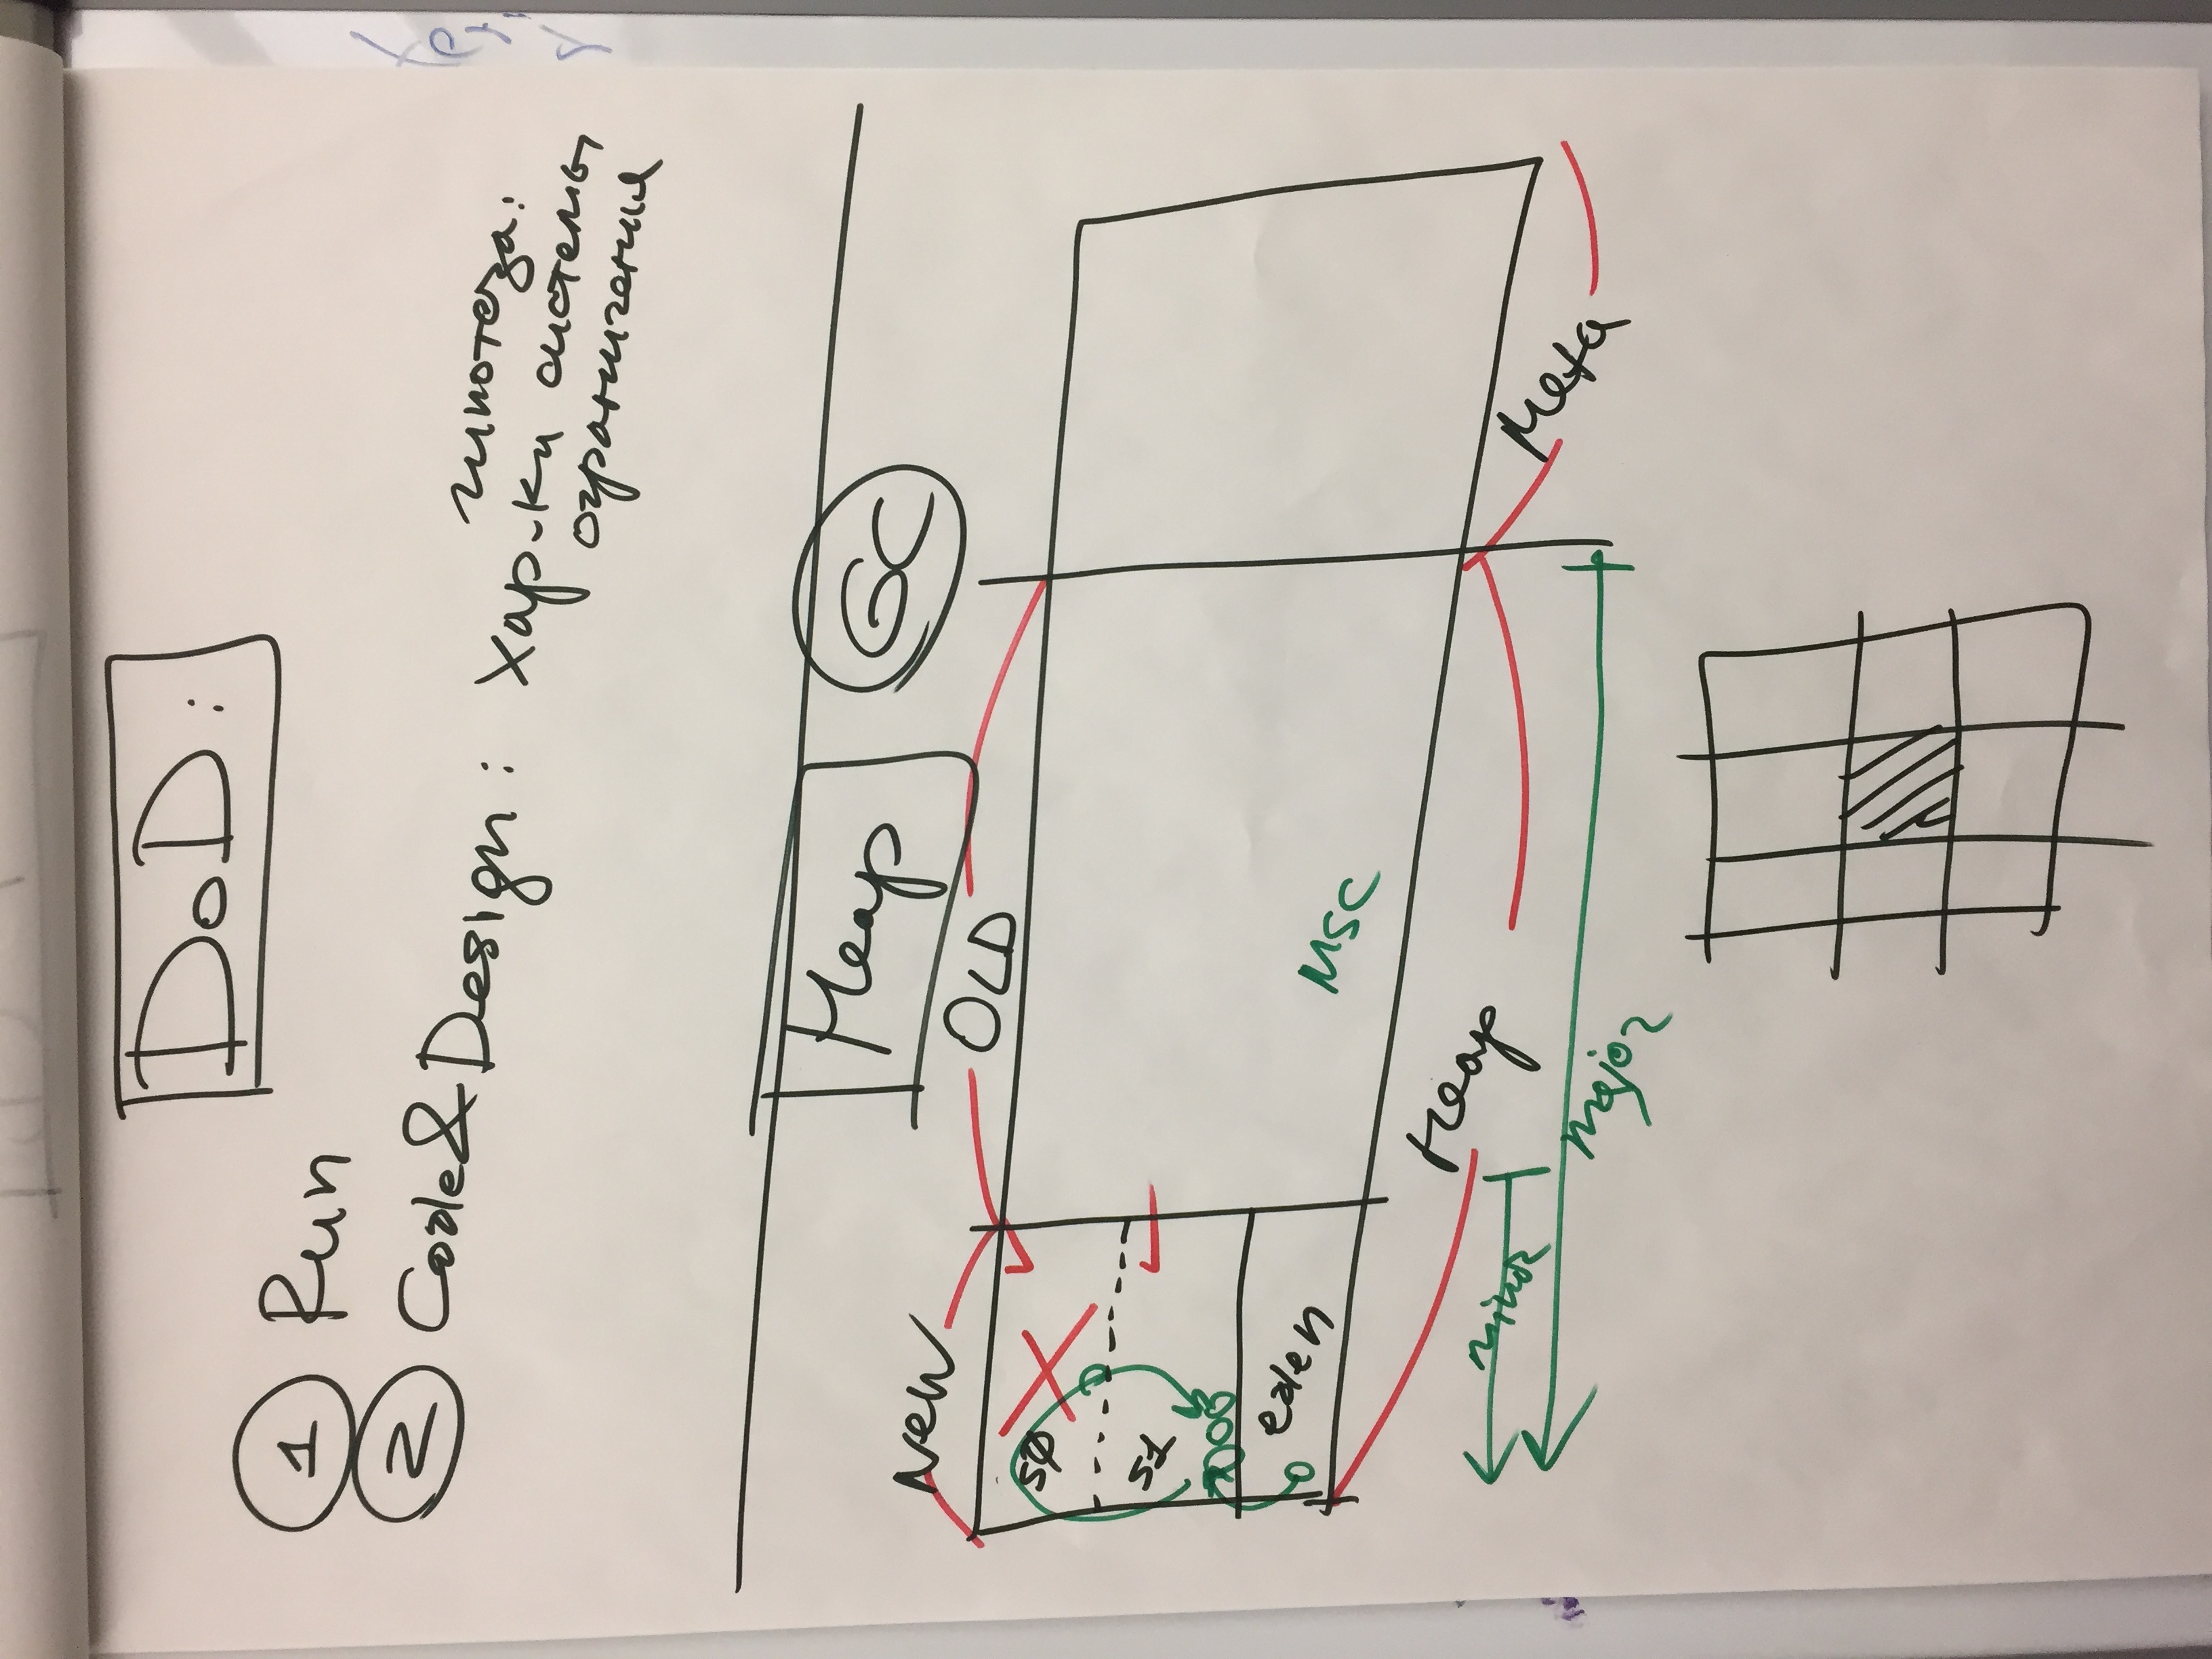 DoD:
1 Run
2 Code&Design:
гипотеза:
Хар-ки системы
ограничения
Heap
GC
New
OLD
SØ
S1
eden
MSC
Heap
minor
major
Meta